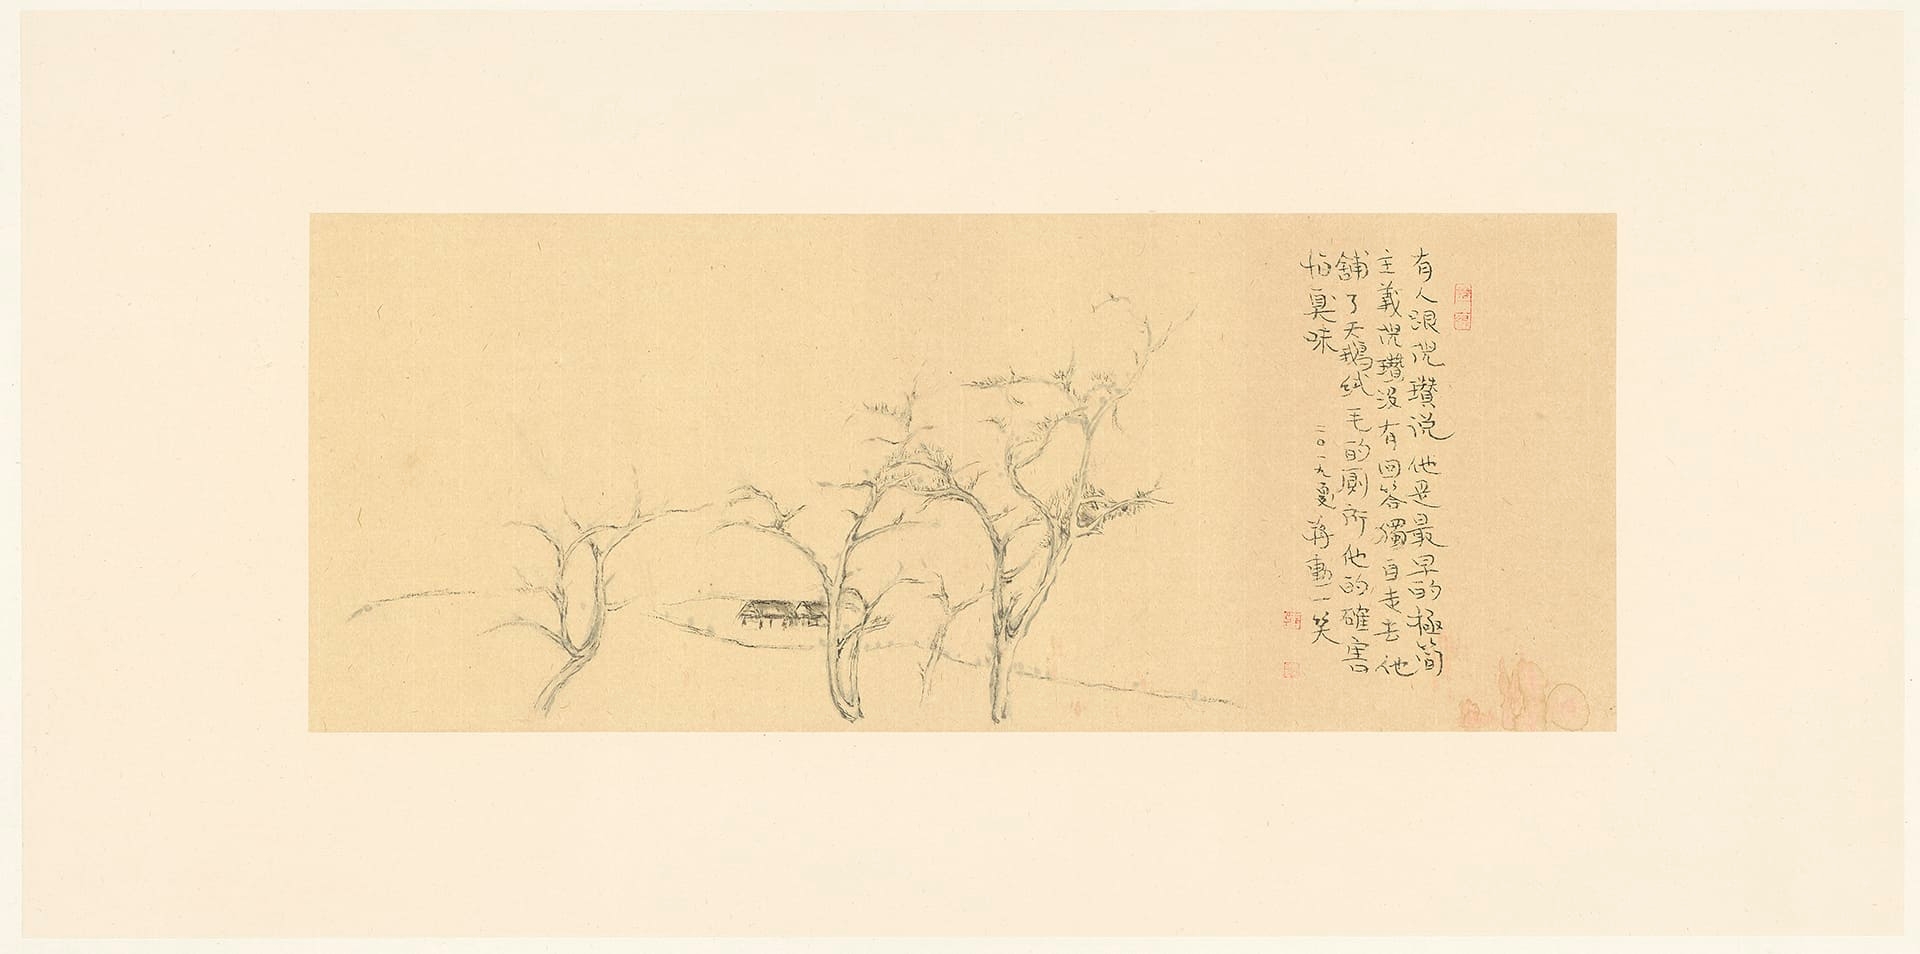 有人跟倪瓚說他是最早的極簡
主義倪瓚沒有回答獨自走去他
舖了天鵝絨毛的厠所他的確害
怕臭味
二〇一九夏蔣勳一笑